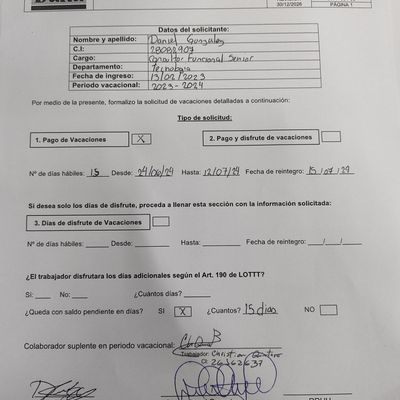 30/12/2026
PÁGINA 1
Datos del solicitante:
Nombre y apellido: Daniel Gonzalez
C.I: 28082907
Cargo: Consultor Funcional Senior
Departamento: Tecnología
Fecha de ingreso: 13/02/2023
Periodo vacacional: 2023-2024
Por medio de la presente, formalizo la solicitud de vacaciones detalladas a continuación:
Tipo de solicitud:
1. Pago de Vacaciones X 2. Pago y disfrute de vacaciones
Nº de días hábiles: 15 Desde: 24/06/24 Hasta: 12/07/24 Fecha de reintegro: 15/07/24
Si desea solo los días de disfrute, proceda a llenar esta sección con la información solicitada:
3. Días de disfrute de Vacaciones
Nº de días hábiles: Desde: Hasta: Fecha de reintegro: / /
¿El trabajador disfrutara los días adicionales según el Art. 190 de LOTTT?
Sí: No: ¿Cuántos días?
¿Queda con saldo pendiente en días? SI X ¿Cuantos? 15 dias NO
Colaborador suplente en periodo vacacional:
Trabajador: Christian Quintero
CI: 26162637
RRHH